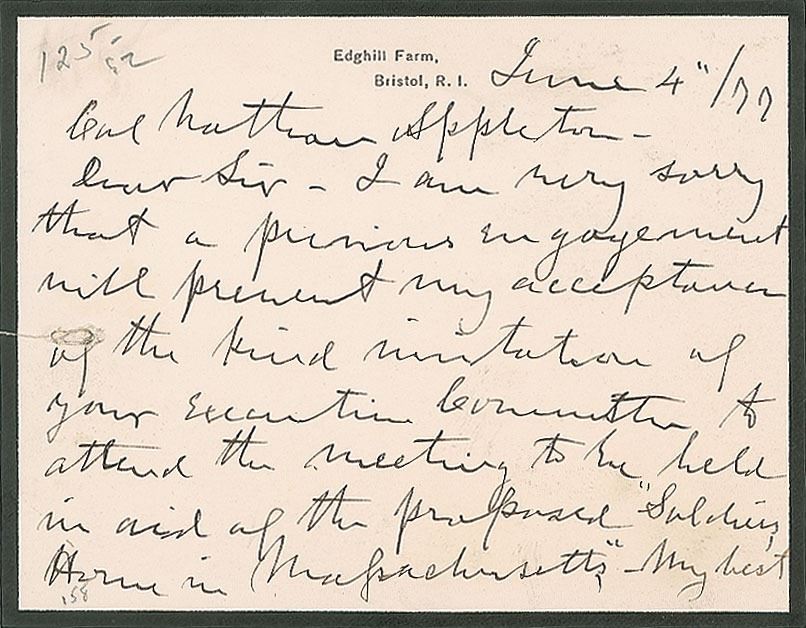 Edghill Farm,
Bristol, R. I. June 4"/77
Col Nathan Appleton -
Dear Sir - I am very sorry
that a previous engagement
will prevent my acceptance
of the kind invitation of
your Executive Committee to
attend the meeting to be held
in aid of the proposed "Soldiers
Home in Massachusetts" - My best